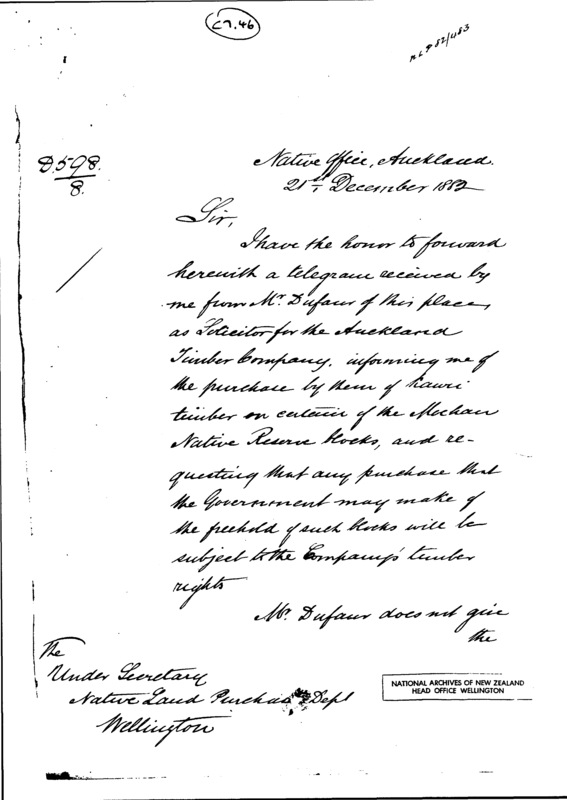 C7.46
NLP 82/483
D.598.
8.
Native Office, Auckland.
21st December 1882
Sir,
I have the honor to forward
herewith a telegram received by
me from Mr. Dufaur of this place,
as Solicitor for the Auckland
Timber Company, informing me of
the purchase by them of kauri
timber on certain of the
Native Reserve blocks, and re-
questing that any purchase that
the Government may make of
the freehold of such blocks will be
subject to the Company's timber
rights
Mr. Dufaur does not give
the
The
Under Secretary
Native Land Purchase Dept
Wellington
NATIONAL ARCHIVES OF NEW ZEALAND
HEAD OFFICE WELLINGTON